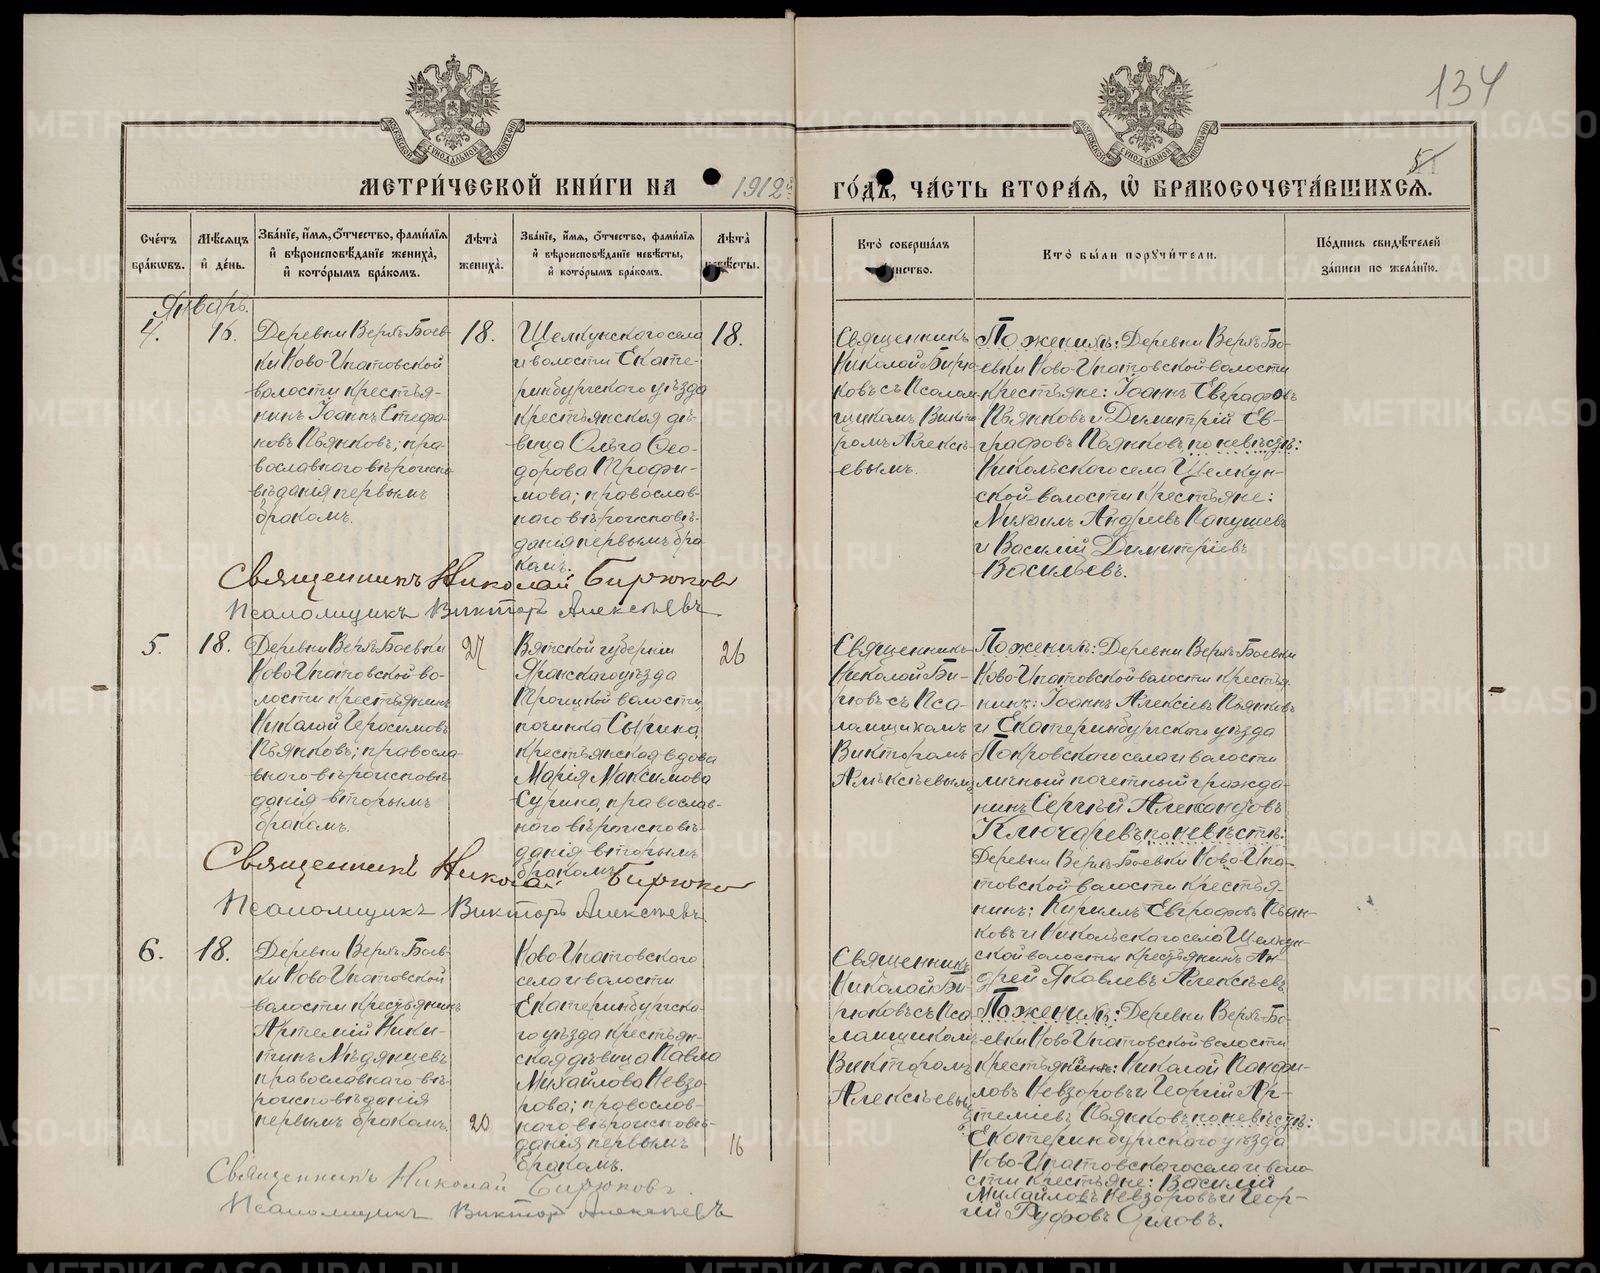 134
51
МЕТРИ́ЧЕСКОЙ КНИ́ГИ НА 1912й ГО́ДЪ, ЧА́СТЬ ВТОРА́Я, Ѡ БРАКОСОЧЕТА́ВШИХСЯ.
Сче́тъ бра́ковъ.
Мѣ́сяцъ и де́нь.
Зва́нїе, и́мя, о́тчество, фами́лїя и вѣроисповѣ́данїе жениха̀, и кото́рымъ бра́комъ.
Лѣ́та жениха̀.
Зва́нїе, и́мя, о́тчество, фами́лїя и вѣроисповѣ́данїе невѣ́сты, и кото́рымъ бра́комъ.
Лѣ́та невѣ́сты.
Кто̀ соверша́лъ таинство.
Кто̀ бы́ли поручи́тели.
По́дпись свидѣ́телей за́писи по жела́нїю.
Январь.
4.
16.
Деревни Верхъ-Боев-
ки Ново-Ипатовской
волости крестья-
нинъ Іоаннъ Стефа-
новъ Пьянковъ; пра-
вославнаго вѣроиспо-
вѣданія первымъ
бракомъ.
18.
Щелкунскаго села
и волости Екате-
ринбургскаго уѣзда
крестьянская дѣ-
вица Ольга Ѳео-
дорова Трофи-
мова; православ-
наго вѣроисповѣ-
данія первымъ бра-
комъ.
18.
Священникъ
Николай Бирю-
ковъ съ Псалом-
щикомъ Викто-
ромъ Алексѣ-
евымъ.
По женихѣ: Деревни Верхъ-Бо-
евки Ново-Ипатовской волости
крестьяне: Іоаннъ Евграфовъ
Пьянковъ и Димитрій Ев-
графовъ Пьянковъ по невѣстѣ:
Никольскаго села Щелкун-
ской волости крестьяне:
Михаилъ Андреевъ Папушевъ
и Василій Димитріевъ
Васильевъ.
Священникъ Николай Бирюковъ
Псаломщикъ Викторъ Алексѣевъ
5.
18.
Деревни Верхъ-Боевки
Ново-Ипатовской во-
лости крестьянинъ
Николай Герасимовъ
Пьянковъ; правосла-
внаго вѣроисповѣ-
данія вторымъ
бракомъ.
27
Вятской губерніи
Яранскаго уѣзда
Троицкой волости
починка Сырина,
крестьянская вдова
Марія Максимова
Сурина, православ-
наго вѣроисповѣ-
данія вторымъ
бракомъ.
26
Священникъ
Николай Би-
рюковъ съ Пса-
ломщикомъ
Викторомъ
Алексѣевымъ
По женихѣ: Деревни Верхъ-Боевки
Ново-Ипатовской волости крестья-
нинъ: Іоаннъ Алексѣевъ Пьянковъ
и Екатеринбургскаго уѣзда
Покровскаго села и волости
личный почетный гражда-
нинъ Сергѣй Александровъ
Ключаревъ по невѣстѣ:
Деревни Верхъ-Боевки Ново-Ипа-
товской волости крестья-
нинъ: Кириллъ Евграфовъ Пьян-
ковъ и Никольскаго села Щелкун-
ской волости крестьянинъ Ан-
дрей Яковлевъ Алексѣевъ
Священникъ Николай Бирюковъ
Псаломщикъ Викторъ Алексѣевъ
6.
18.
Деревни Верхъ-Боев-
ки Ново-Ипатовской
волости крестьянинъ
Артемій Ники-
тинъ Мѣдянцевъ
православнаго вѣ-
роисповѣданія
первымъ бракомъ.
20
Ново-Ипатовскаго
села и волости
Екатеринбургска-
го уѣзда крестьян-
ская дѣвица Павла
Михайлова Невзо-
рова; православ-
наго вѣроисповѣ-
данія первымъ
бракомъ.
16
Священникъ
Николай Би-
рюковъ съ Пса-
ломщикомъ
Викторомъ
Алексѣевымъ
По женихѣ: Деревни Верхъ-Бо-
евки Ново-Ипатовской волости
крестьяне: Николай
ловъ Невзоровъ и Георгій Ар-
темиевъ Пьянковъ по невѣстѣ:
Екатеринбургскаго уѣзда
Ново-Ипатовскаго села и воло-
сти крестьяне: Василій
Михайловъ Невзоровъ и Геор-
гій Руфовъ Орловъ.
Священникъ Николай Бирюковъ.
Псаломщикъ Викторъ Алексѣевъ